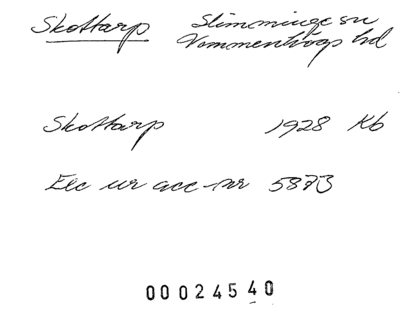 Skottarp Slimminge sn
Vemmenhögs hd
Skottarp 1928 Kb
Exc ur acc-nr 5873
00024540